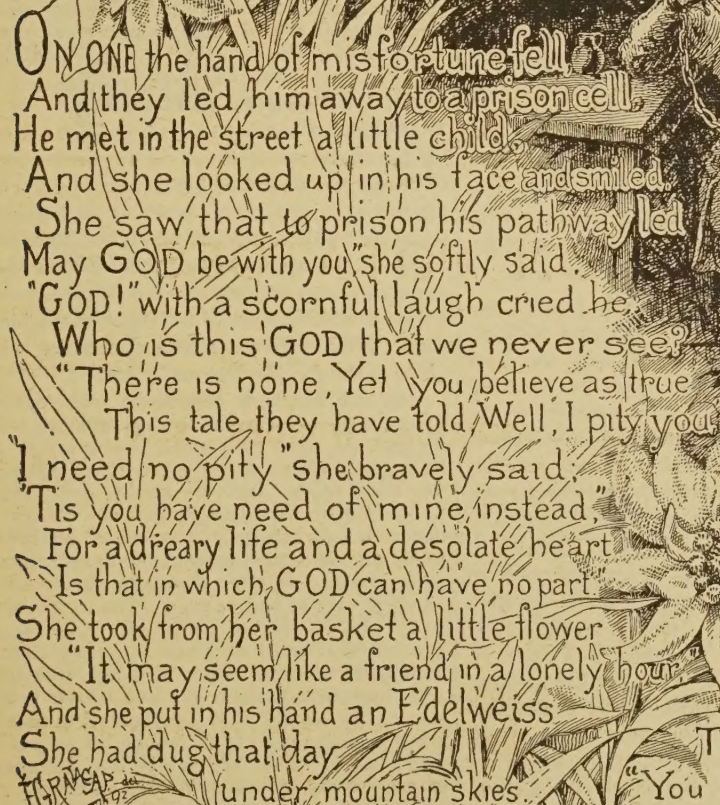 ON ONE the hand of misfortune fell,
And they led him away to a prison cell,
He met in the street a little child,
And she looked up in his face and smiled.
She saw that to prison his pathway led
May GOD be with you," she softly said,
"GOD!" with a scornful laugh cried he,
Who is this GOD that we never see?
"There is none, Yet you believe as true
This tale they have told, Well, I pity you
"I need no pity" she bravely said;
'Tis you have need of mine, instead,"
For a dreary life and a desolate heart
Is that in which GOD can have no part"
She took from her basket a little flower
"It may seem like a friend in a lonely hour,"
And she put in his hand an Edelweiss
She had dug that day
under mountain skies.
"You
T